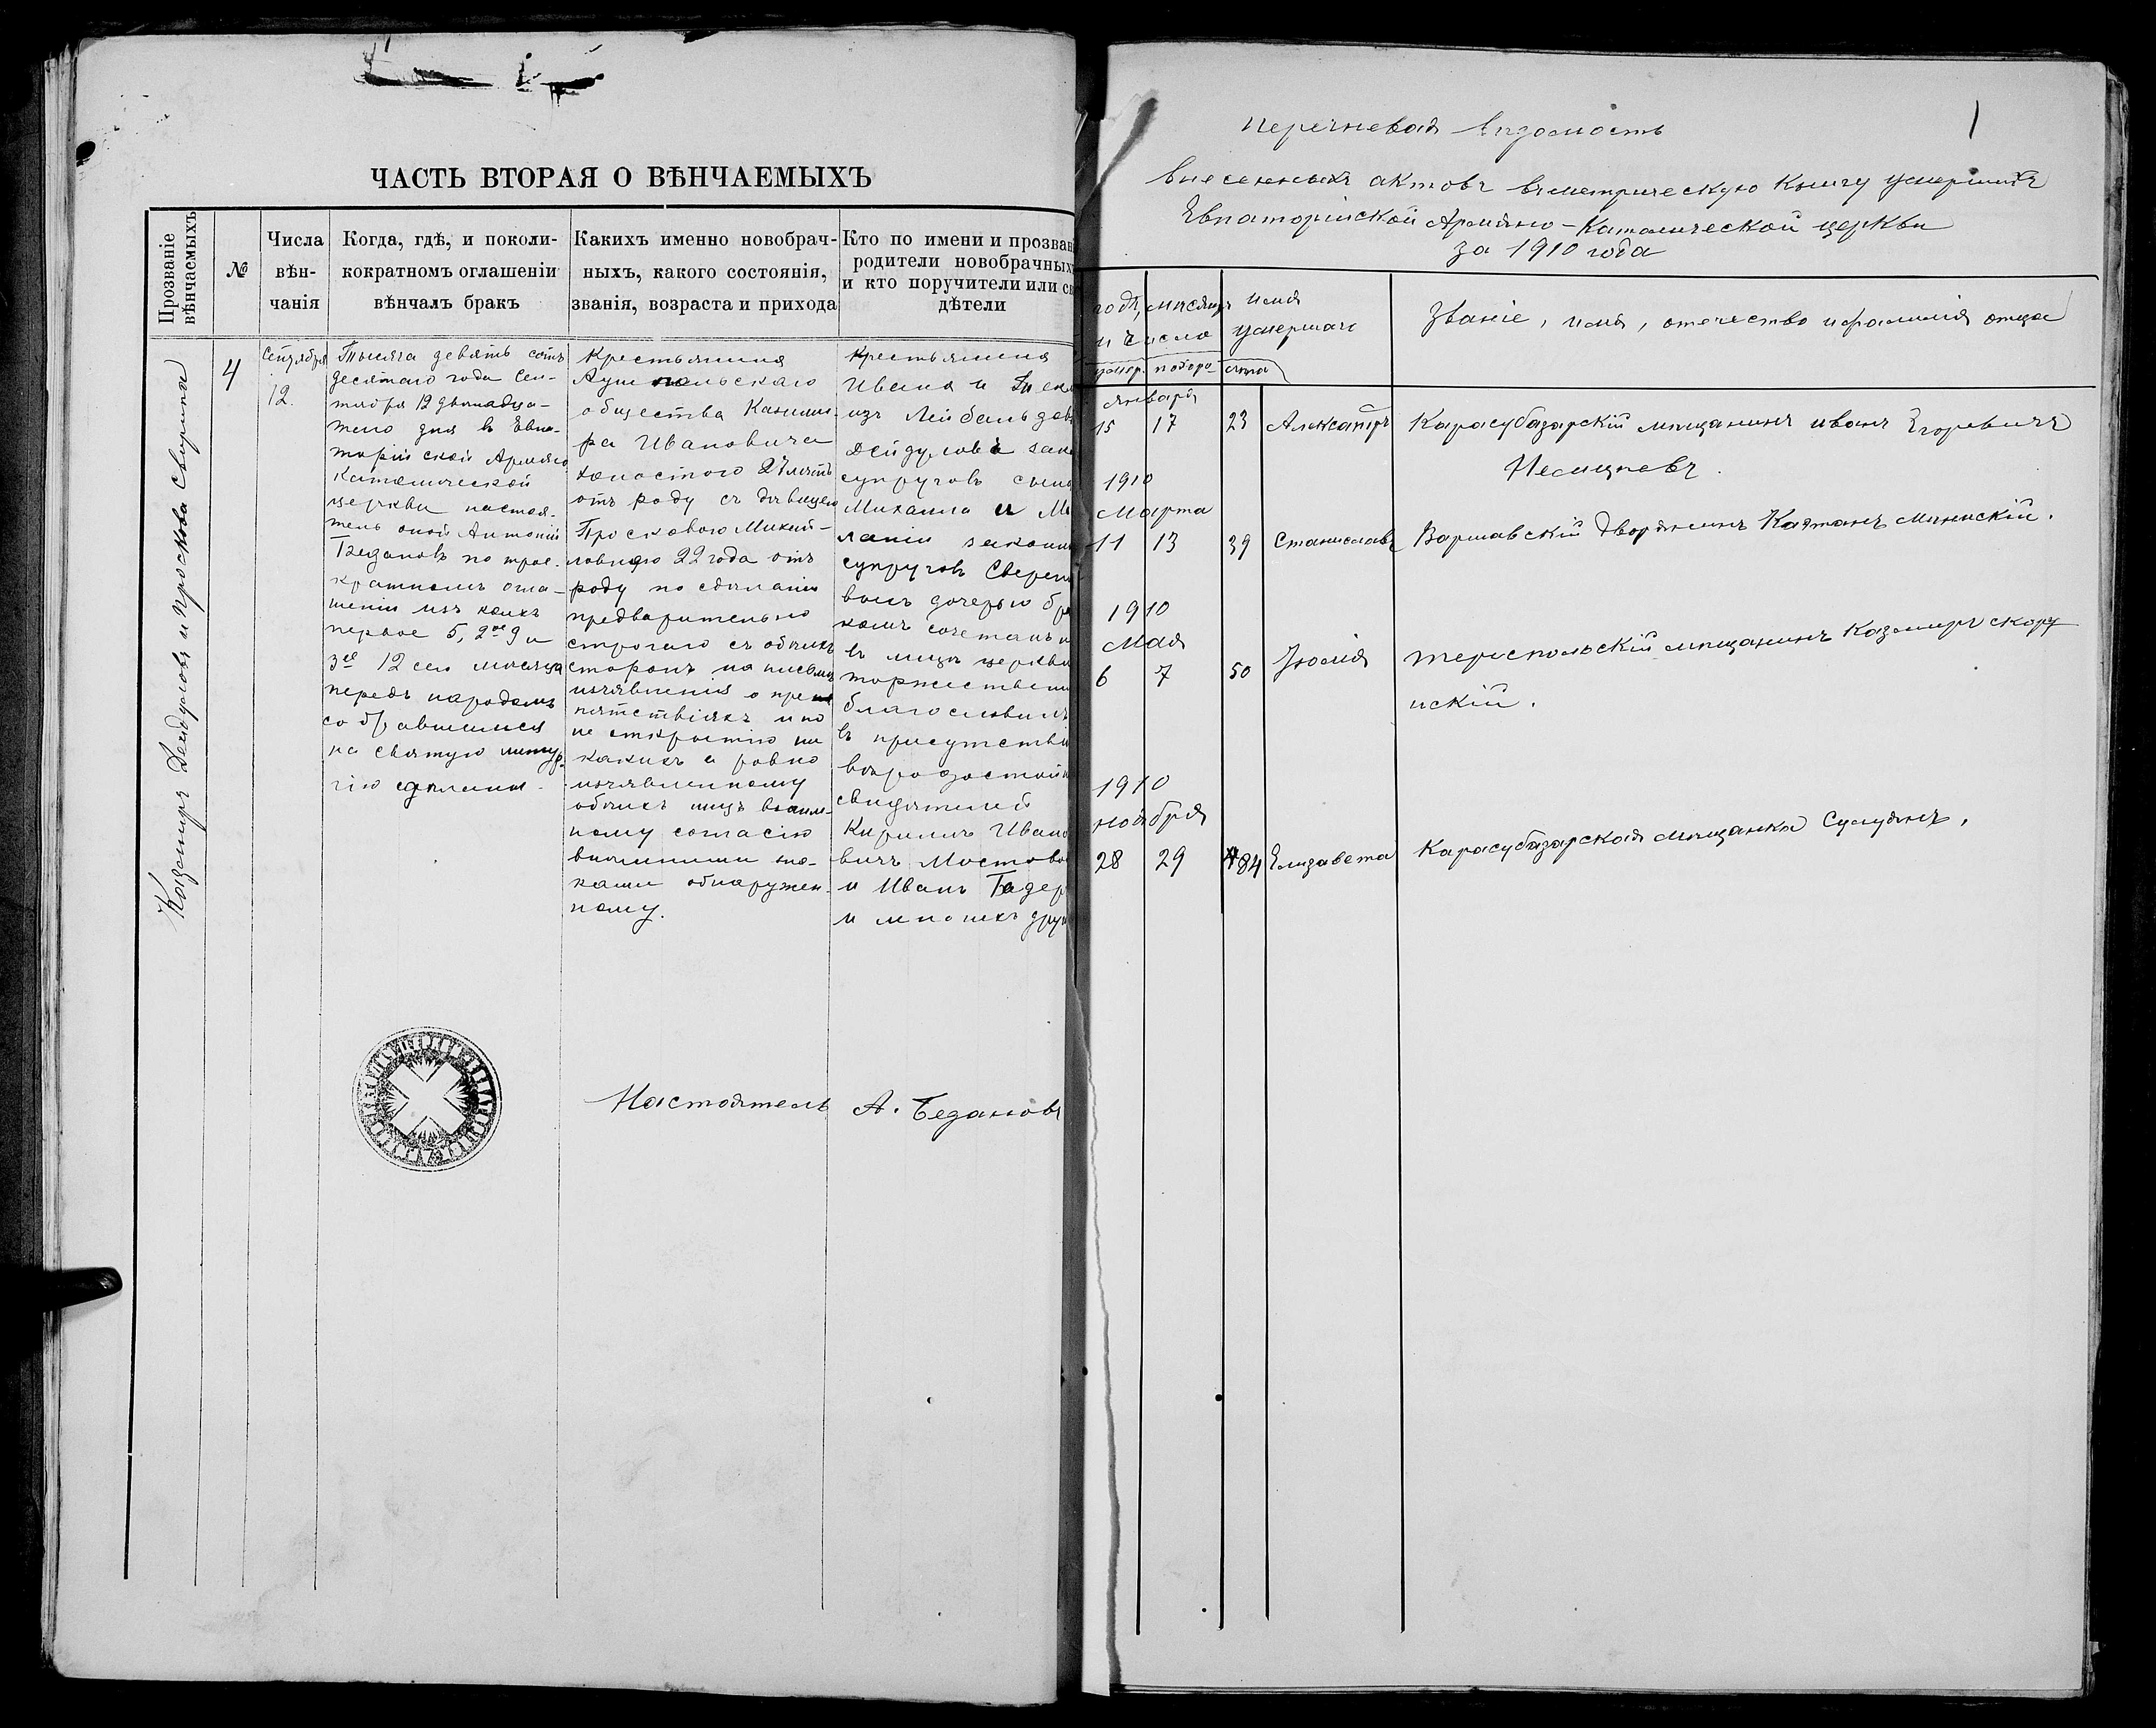 ЧАСТЬ ВТОРАЯ О ВѢНЧАЕМЫХЪ
Прозваніе
вѣнчаемыхъ
№
Числа
вѣн-
чанія
Когда, гдѣ, и поколи-
кократномъ оглашеніи
вѣнчалъ бракъ
Какихъ именно новобрач-
ныхъ, какого состоянія,
званія, возраста и прихода
Кто по имени и прозван
родители новобрачных
и кто поручители или с
дѣтели
Казимиръ Дейдуловъ и Просковія Сверипа
4
Сентября
12.
Тысяча девять сотъ
десятаго года Сен-
тября 12 двенадца-
того дня в Евпа-
торійской Армяно
Католической
церкви настоя-
тель оной Антоній
Беданов по трое-
кратномъ огла-
шеніи изъ коихъ
первое 5, 2ое 9 и
3ее 12 сего месяца
передъ народомъ
собравшимся
на святую литур-
гію
Крестьянина
общества Казими-
ра Ивановича
холостого 27 летъ
отъ роду съ девицею
Просковіею Михай-
ловною 22 года отъ
роду по сделаніи
предварительно
строгаго съ обоихъ
сторонъ на письме
изъявленія о пре
пятствіяхъ и по
не открытію ни
какихъ а равно
изъявленному
обоихъ лицъ взаим-
ному согласію
внешними зна-
ками обнаружен-
ному.
Крестьянина
Ивана и
изъ
Дейдулова зако
супруговъ сына
Михаила и М
ланіи законн
супруговъ Свери
выхъ дочерью бра
комъ сочеталъ и
въ лице церкви
торжественн
благословилъ
въ присутстви
веродостойн
свидетелей
Кирилъ Ивано
вичъ Мостово
и Иванъ
и многихъ друг
Настоятель А. Бедановъ
1
Перечневая Ведомость
внесенныхъ актовъ въ метрическую книгу умершихъ
Евпаторійской Армяно-Католической церкви
за 1910 года
годъ, месяцъ
и число
умер. похоро-
имя
умершаго
лета
Званіе, имя, отечество и фамилія отца
Января
15 17 23 Александръ Карасубазарскій мещанинъ иванъ Егоровичъ
Немцневъ.
1910
Марта
11 13 39 Станиславъ Варшавскій Дворянинъ Каэтанъ Минискій.
1910
Мая
6 7 50 Юлія Териспольскій мещанинъ Казимиръ скору
искій.
1910
ноября
28 29 84 Елизавета Карасубазарская мещанка Сулудянъ,